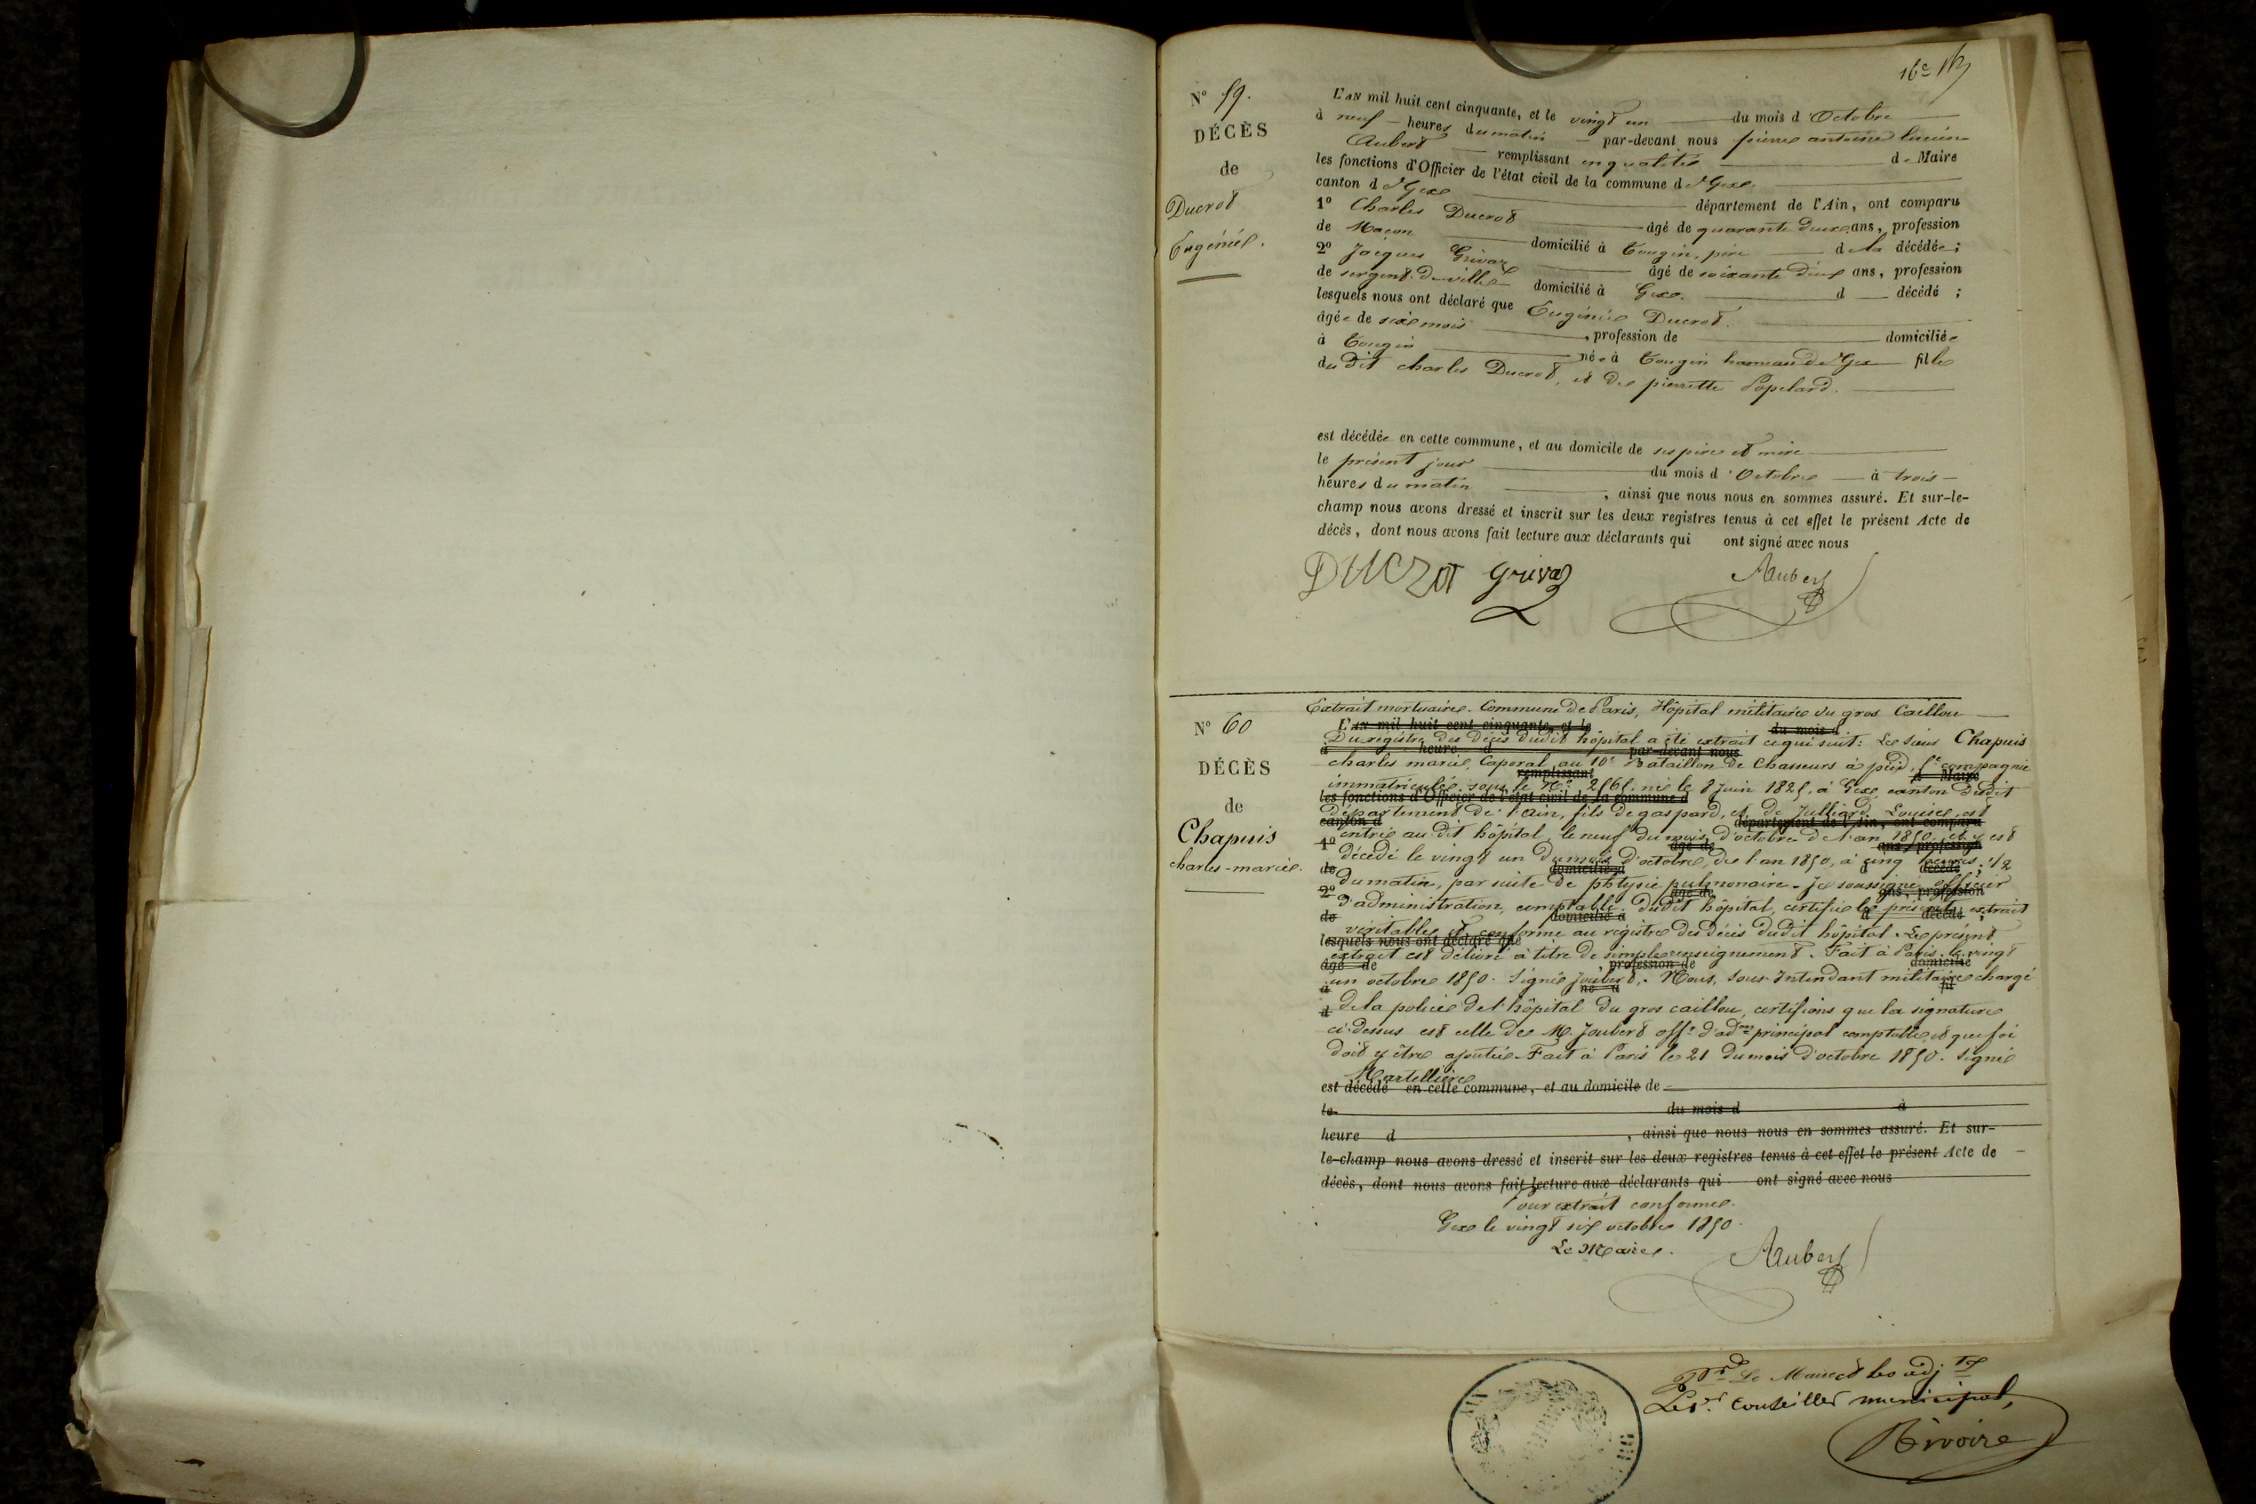 16e
N° 59.
DÉCÈS
de
Ducrot
Eugénie.
L'AN mil huit cent cinquante, et le vingt un du mois d'Octobre
à neuf heures du matin par-devant nous pierre antoine lucien
Aubert remplissant en qualité de Maire
les fonctions d'Officier de l'état civil de la commune de Gex.
canton de Gex département de l'Ain, ont comparu
1° Charles Ducrot âgé de quarante deux ans, profession
de Maçon domicilié à Tougin, père de la décédée;
2° Jacques Grivaz âgé de soixante deux ans, profession
de sergent de ville domicilié à Gex. d décédé;
lesquels nous ont déclaré que Eugénie Ducrot.
âgée de six mois, profession de domiciliée
à Tougin née à Tougin hameau de Gex fille
du dit charles Ducrot, et de pierrette Popelard.
est décédée en cette commune, et au domicile de ses père et mère
le présent jour du mois d'Octobre à trois
heures du matin, ainsi que nous nous en sommes assuré. Et sur-le-
champ nous avons dressé et inscrit sur les deux registres tenus à cet effet le présent Acte de
décès, dont nous avons fait lecture aux déclarants qui ont signé avec nous
DUCROT Grivaz Aubert
N° 60
DÉCÈS
de
Chapuis
charles-marie.
Extrait mortuaire. Commune de Paris, Hôpital militaire du gros Caillou
L'AN mil huit cent cinquante, et le du mois d
Du registre des décès dudit hôpital a été extrait ce qui suit: Le sieur Chapuis
à heure d par-devant nous
charles marie, Caporal au 10e Bataillon de Chasseurs à pied, compagnie
remplissant d Maire
immatriculé sous le N° 2561. né le 8 juin 1825, à Gex canton dudit
les fonctions d'Officier de l'état civil de la commune d
département de l'ain, fils de gaspard, et de Julliard Louise, est
canton d département de l'Ain, ont comparu
entré au dit hôpital le neuf du mois d'octobre de l'an 1850, et y est
1° âgé de ans, profession
décédé le vingt un du mois d'octobre, de l'an 1850, à cinq heures 1/2
de domicilié à d décédé;
du matin, par suite de phtysie pulmonaire. Je soussigné officier
2° âgé de ans, profession
d'administration, comptable dudit hôpital, certifie le présent extrait
de domicilié à d décédé;
véritable et conforme au registre des décès dudit hôpital. Le présent
lesquels nous ont déclaré que
extrait est délivré à titre de simple renseignement. Fait à Paris le vingt
âgé de, profession de domicilié
un octobre 1850. Signé Joubert. Nous, Sous-Intendant militaire chargé
à né à fil
de la police de l'hôpital du gros caillou, certifions que la signature
d
ci-dessus est celle de M. Joubert offr d'adon principal comptable, et que foi
doit y être ajoutée. Fait à Paris le 21 du mois d'octobre 1850. signé
Martellière
est décédé en cette commune, et au domicile de
le du mois d à
heure d, ainsi que nous nous en sommes assuré. Et sur-
le-champ nous avons dressé et inscrit sur les deux registres tenus à cet effet le présent Acte de
décès, dont nous avons fait lecture aux déclarants qui ont signé avec nous
Pour extrait conforme.
Gex le vingt six octobre 1850.
Le Maire. Aubert
Pr Le Maire et les adjts
Le 1er Conseiller municipal,
Rivoire